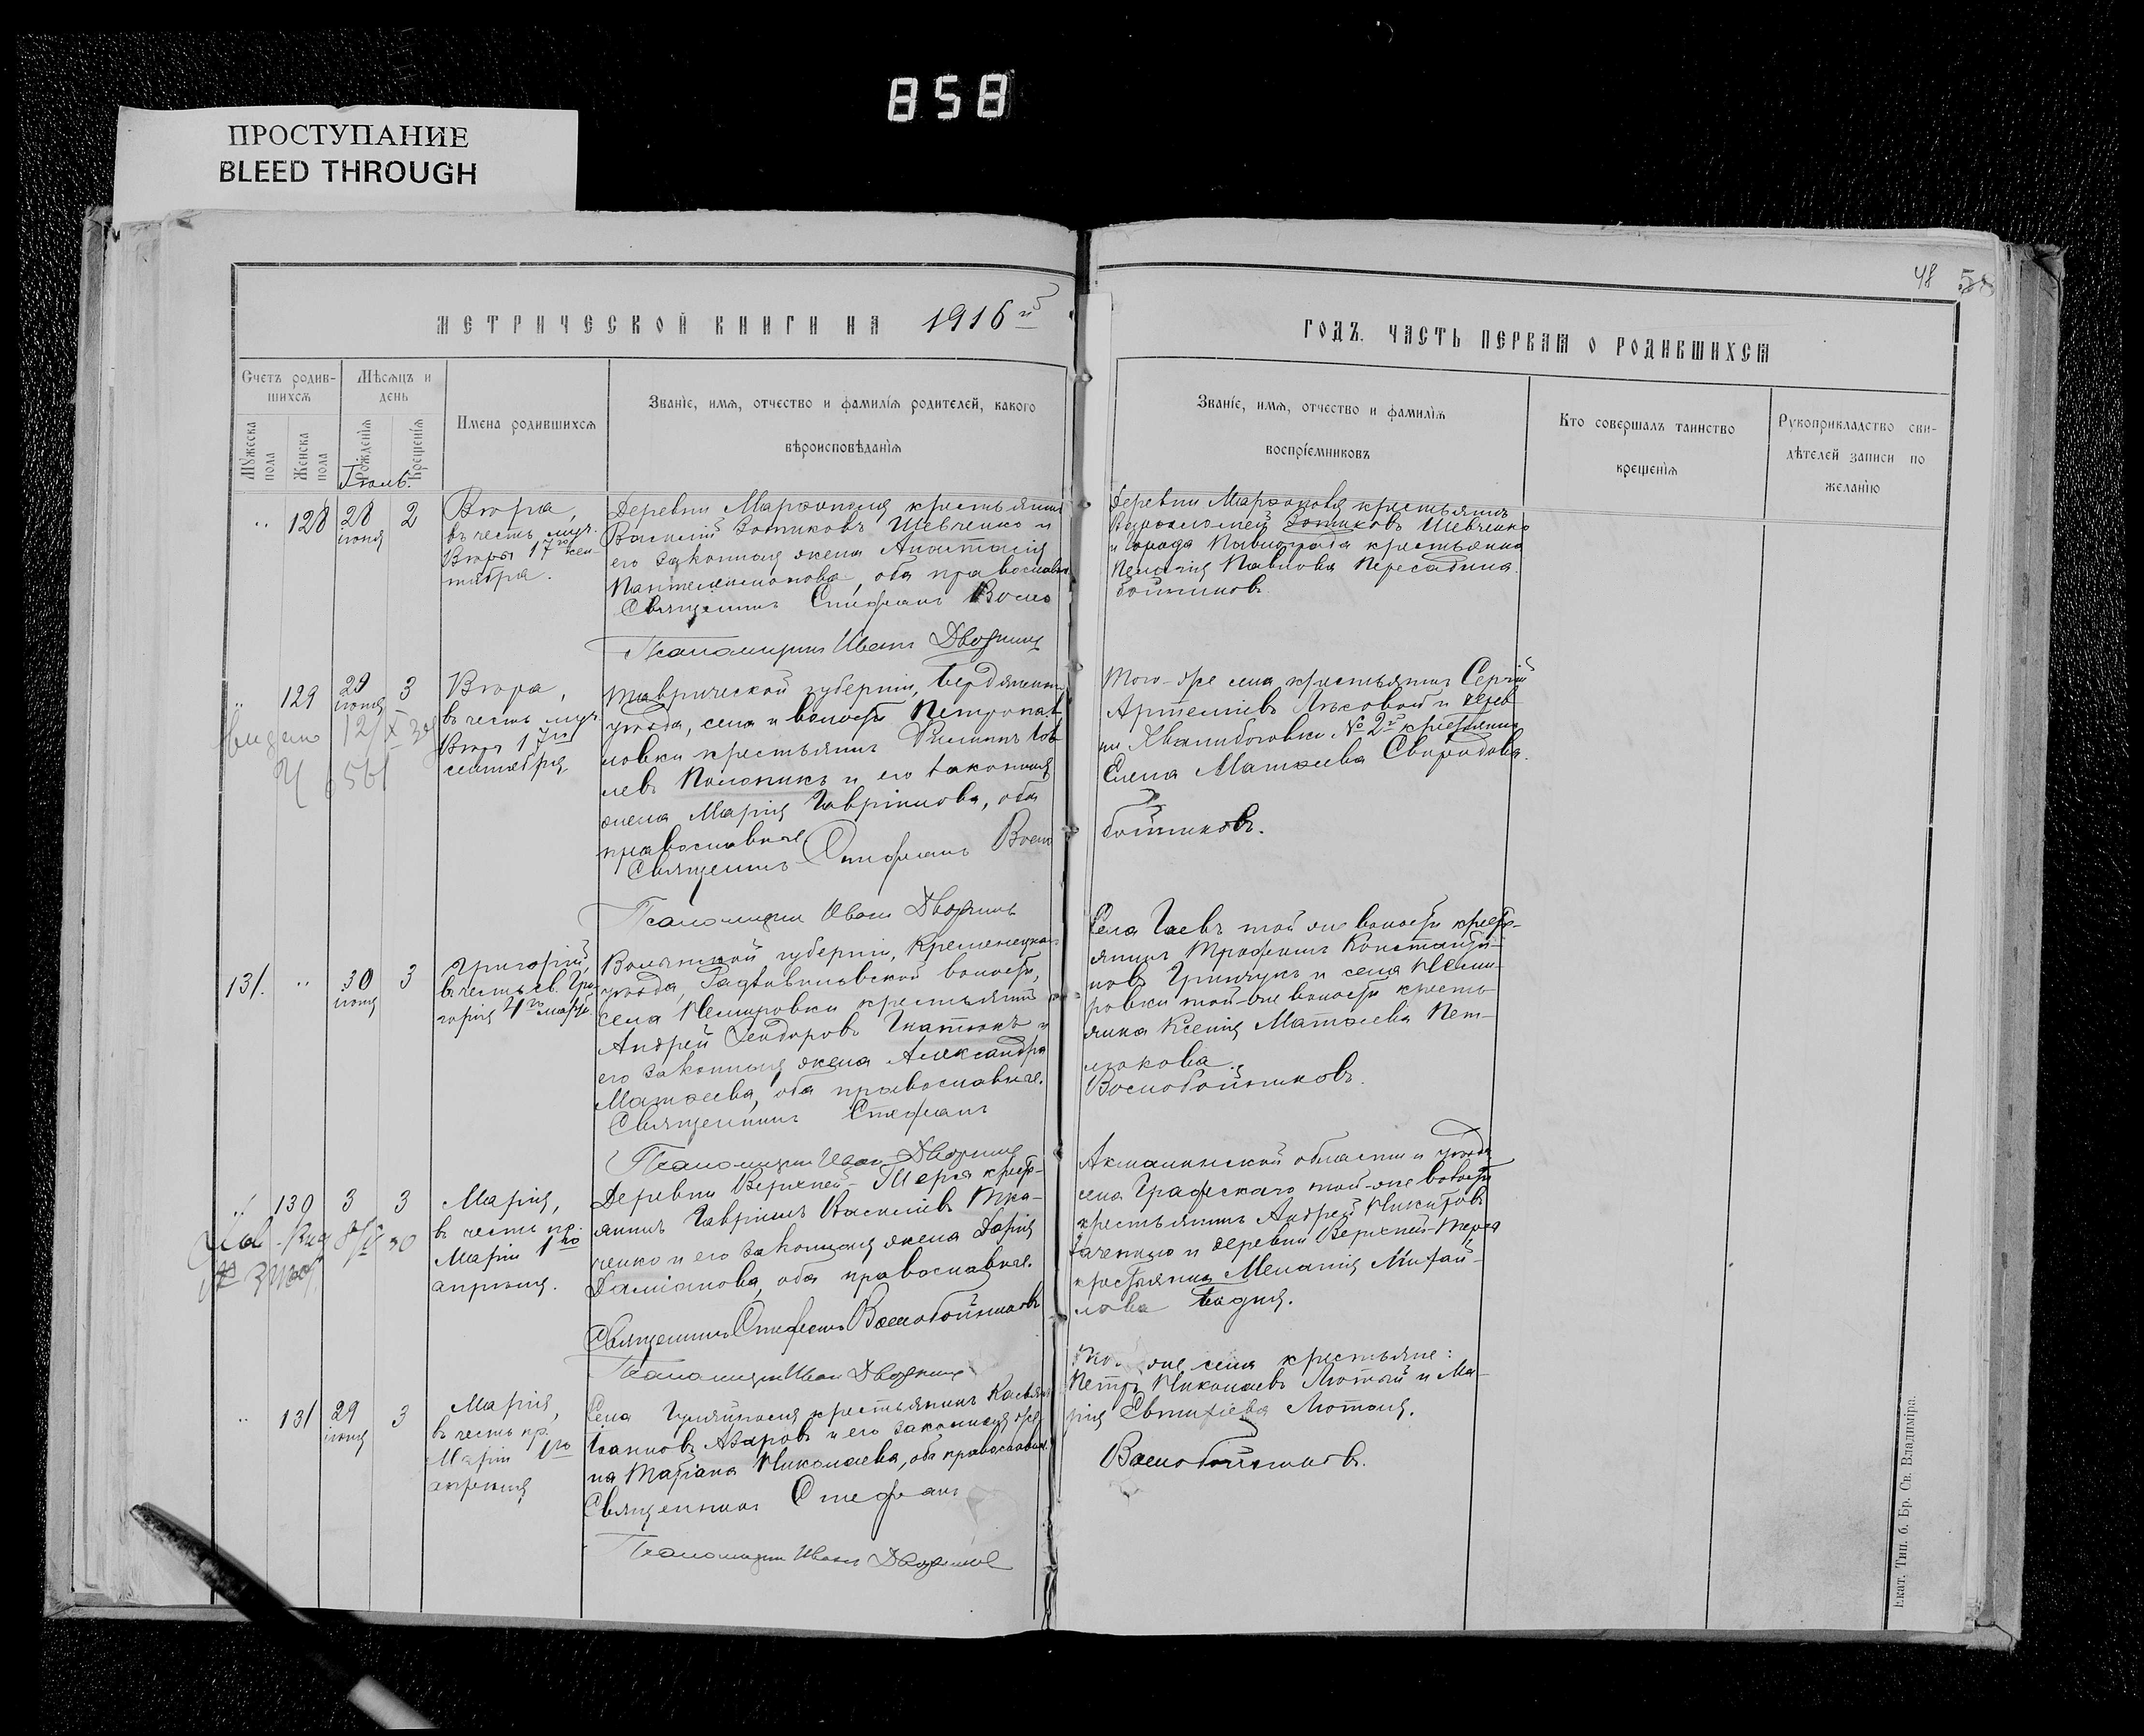 858
ПРОСТУПАНИЕ
BLEED THROUGH
48 58
МЕТРИЧЕСКОЙ КНИГИ НА 1916й
ГОДЪ. ЧАСТЬ ПЕРВАЯ О РОДИВШИХСЯ
Счетъ родив-
шихся
Мѣсяцъ и
день
Мужеска пола
Женска пола
Рожденія
Крещенія
Имена родившихся
Званіе, имя, отчество и фамилія родителей, какого
вѣроисповѣданія
Званіе, имя, отчество и фамилія
воспріемниковъ
Кто совершалъ таинство
крещенія
Рукоприкладство сви-
дѣтелей записи по
желанію
Іюль.
„ 128 28 іюня 2
Вѣра,
въ честь муч.
Вѣры 17го сен-
тября.
Деревни Марфополя крестьянинъ
Василій Зотиковъ Шевченко и
его законная жена Анастасія
Пантелеимонова, оба православн.
Священникъ Стефанъ Воско
Псаломщикъ Иванъ
Деревни Марфополя крестьянинъ
Зотиковъ Шевченко
и города Павлограда крестьянка
Павлова
бойниковъ
„ 129 29 іюня 3
Вѣра,
въ честь муч.
Вѣры 17го
сентября
Таврической губерніи, Бердянскаго
уѣзда, села и волости Петропав-
ловки крестьянинъ
и его законная
жена Марія Гавріилова, оба
православные
Священникъ Стефанъ Воско
Псаломщикъ Иванъ
Того-же села крестьянинъ Сергій
Артеміевъ Лѣсовой и дерев
№ 2й крестьянка
Елена Матѳеева Свиридова.
бойниковъ.
131. „ 30 іюня 3
Григорій
въ честь св. Гри-
горія
Волынской губерніи, Кременецкаго
уѣзда, Радзивиловской волости,
села Немировки крестьянинъ
Андрей Ѳеодоровъ Игнатюкъ и
его законная жена Александра
Матѳеева, оба православные.
Священникъ Стефанъ
Псаломщикъ Иванъ
Села Гаевъ той же волости кресть-
янинъ Трофимъ Константи-
новъ Гринчукъ и села Неми-
ровки той-же волости кресть-
янка Ксенія Матѳеева Пет-
люкова.
Воскобойниковъ.
„ 130 3 3
Марія,
въ честь пр.
Маріи 1го
апрѣля.
Деревни Верхней-Терсы кресть-
янинъ Гавріилъ Василіевъ Тка-
ченко и его законная жена Дарія
Даміанова, оба православные.
Священникъ Стефанъ Воскобойниковъ
Псаломщикъ Иванъ
Акмолинской области и уѣзда
села Графскаго той-же волости
крестьянинъ Андрей Никитовъ
и деревни Верхней-Терсы
крестьянка Меланія Михай-
лова
„ 131 29 іюня 3
Марія,
въ честь пр.
Маріи 1го
апрѣля
Села Гуляйполя крестьянинъ Касьянъ
Іоанновъ Азаровъ и его законная же-
на Татіана Николаева, оба православные.
Священникъ Стефанъ
Псаломщикъ Иванъ
же села крестьяне:
Петръ Николаевъ Лютый и Ма-
рія Евтихіева Лютая.
Воскобойниковъ.
Екат. Тип. б. Бр. Св. Владиміра.